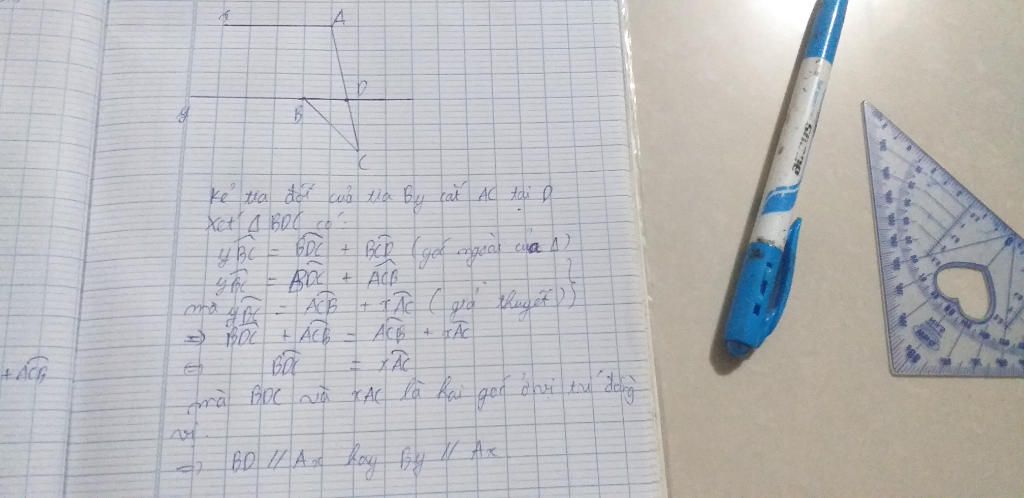 x A
y B D
C
Kẻ tia đối của tia By cắt AC tại D
Xét Δ BDC có:
yBC = BDC + BCD (góc ngoài của Δ)
yBC = BDC + ACB
mà yBC = ACB + xAC (giả thuyết)
=> BDC + ACB = ACB + xAC
<=> BDC = xAC
mà BDC và xAC là hai góc ở vị trí đồng
vị.
=> BD // Ax hay By // Ax
+ ACB